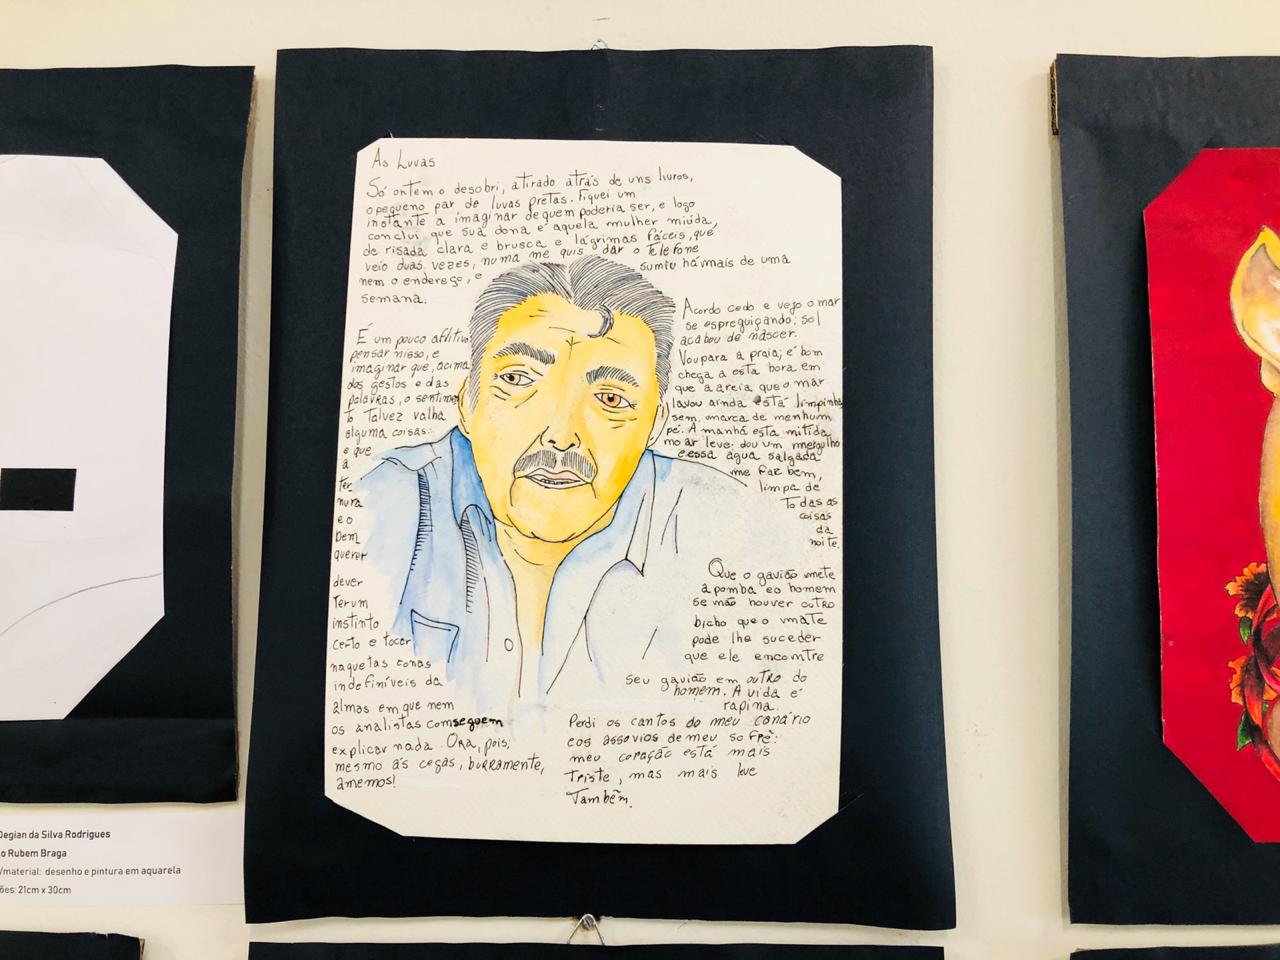 As Luvas
Só ontem o desobri, atirado atrás de uns livros,
o pequeno par de luvas pretas. Fiquei um
instante a imaginar de quem poderia ser, e logo
conclui que sua dona e aquela mulher miúda,
de risada clara e brusca e lágrimas fáceis, que
veio duas vezes, numa me quis dar o telefone
nem o endereço, e sumiu há mais de uma
semana.
É um pouco aflitivo
pensar nisso, e
imaginar que, acima
dos gestos e das
palavras, o sentimen
to talvez valha
alguma coisa:
e que
a
ter
nura
e o
bem
querer
dever
ter um
instinto
certo e tocar
naquelas zonas
indefiníveis da
almas em que nem
os analistas comseguem
explicar nada. Ora, pois;
mesmo às cegas, burramente,
amemos!
Acordo cedo e vejo o mar
se espreguiçando; sol
acabou de nascer.
Vou para a praia; é bom
chega a esta hora em
que a areia que o mar
lavou ainda está limpinha
sem marca de menhum
pé. A manhã esta mitida
mo ar leve; dou um mergulho
e essa água salgada
me faz bem,
limpa de
todas as
coisas
da
noite.
Que o gavião mete
a pomba e o homem
se mão houver outro
bicho que o mate
pode lhe suceder
que ele encomtre
seu gavião em outro do
homem. A vida é
rapina.
Perdi os cantos do meu canário
e os assovios de meu sofrê:
meu coração está mais
triste, mas mais leve
Também.
Degian da Silva Rodrigues
o Rubem Braga
/material: desenho e pintura em aquarela
ões: 21cm x 30cm